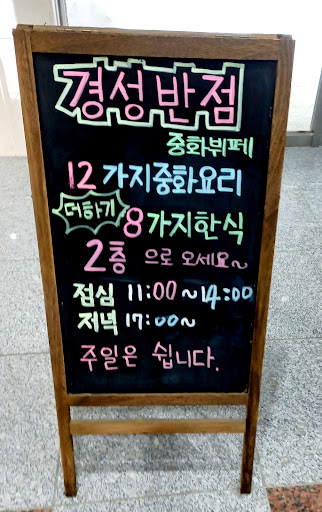 경성반점
중화뷔페
12 가지중화요리
더하기 8가지한식
2층 으로 오세요~
점심 11:00~14:00
저녁 17:00~
주일은 쉽니다.